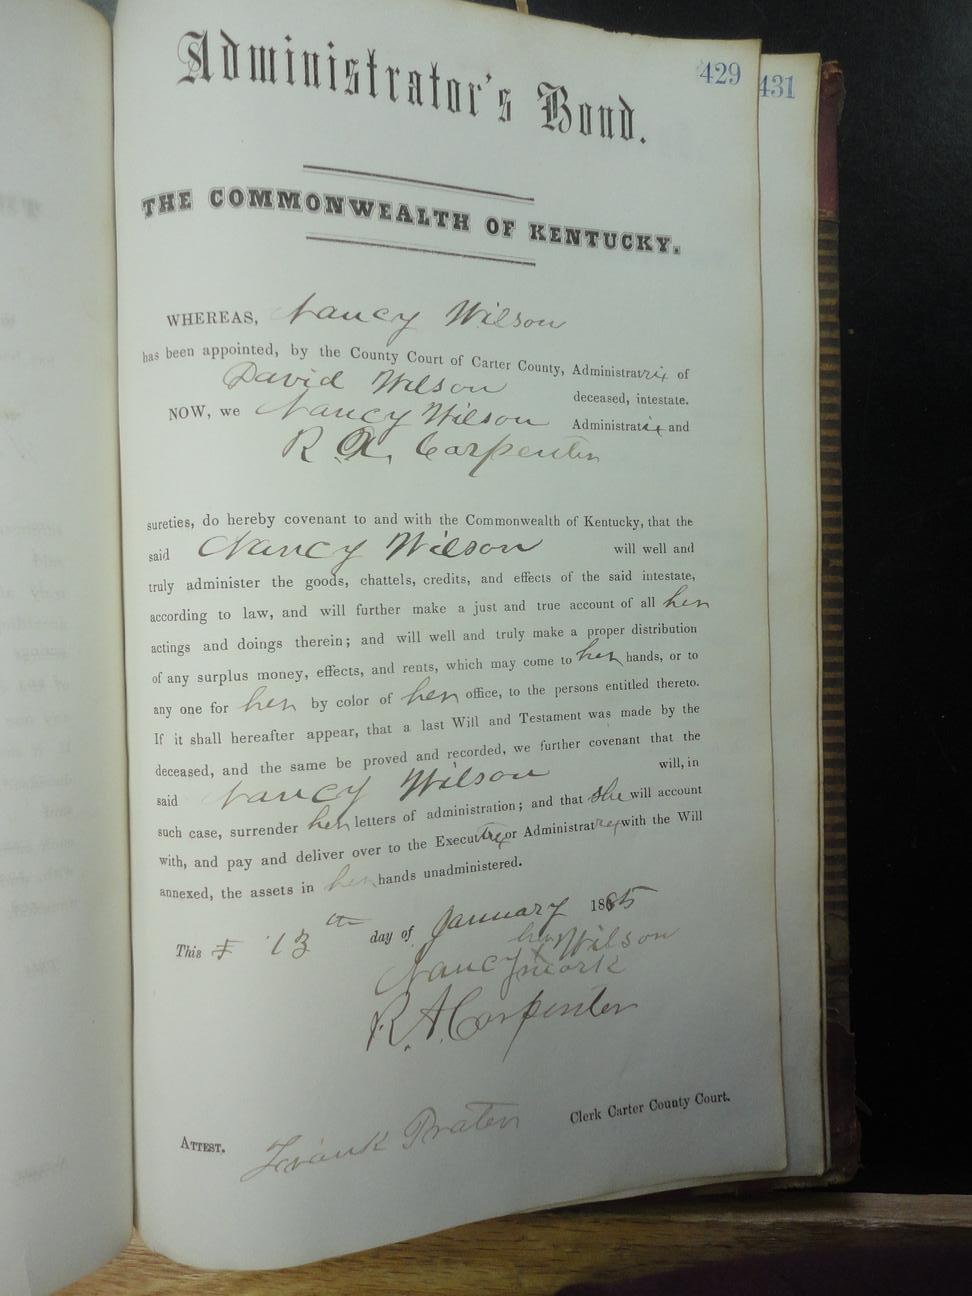 429
431
Administrator's Bond.
THE COMMONWEALTH OF KENTUCKY.
WHEREAS, Nancy Wilson
has been appointed, by the County Court of Carter County, Administratrix of
David Wilson deceased, intestate.
NOW, we Nancy Wilson Administratrix and
R. A. Carpenter
sureties, do hereby covenant to and with the Commonwealth of Kentucky, that the
said Nancy Wilson will well and
truly administer the goods, chattels, credits, and effects of the said intestate,
according to law, and will further make a just and true account of all her
actings and doings therein; and will well and truly make a proper distribution
of any surplus money, effects, and rents, which may come to her hands, or to
any one for her by color of her office, to the persons entitled thereto.
If it shall hereafter appear, that a last Will and Testament was made by the
deceased, and the same be proved and recorded, we further covenant that the
said Nancy Wilson will, in
such case, surrender her letters of administration; and that She will account
with, and pay and deliver over to the Executrix or Administratrix with the Will
annexed, the assets in her hands unadministered.
This 13th day of January 1885
Nancy her X mark Wilson
R. A Carpenter
ATTEST. Frank Prater Clerk Carter County Court.